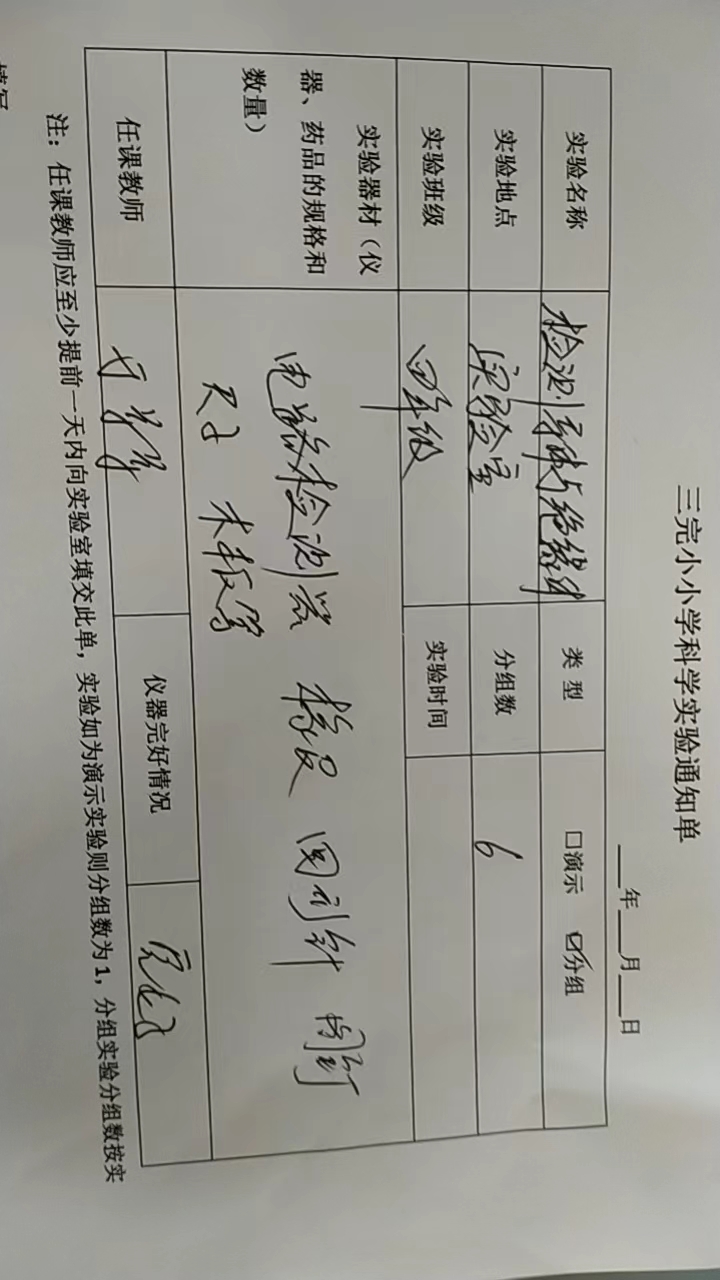 三完小小学科学实验通知单
___年___月___日
实验名称 检测导体与绝缘体 类 型 □演示 ☑分组
实验地点 实验室 分组数 6
实验班级 四年级 实验时间
实验器材（仪器、药品的规格和数量） 电路检测器 橡皮 回形针 铜钉
尺子 木板等
任课教师 仪器完好情况 完好
注：任课教师应至少提前一天内向实验室填交此单，实验如为演示实验则分组数为1，分组实验分组数按实
填写